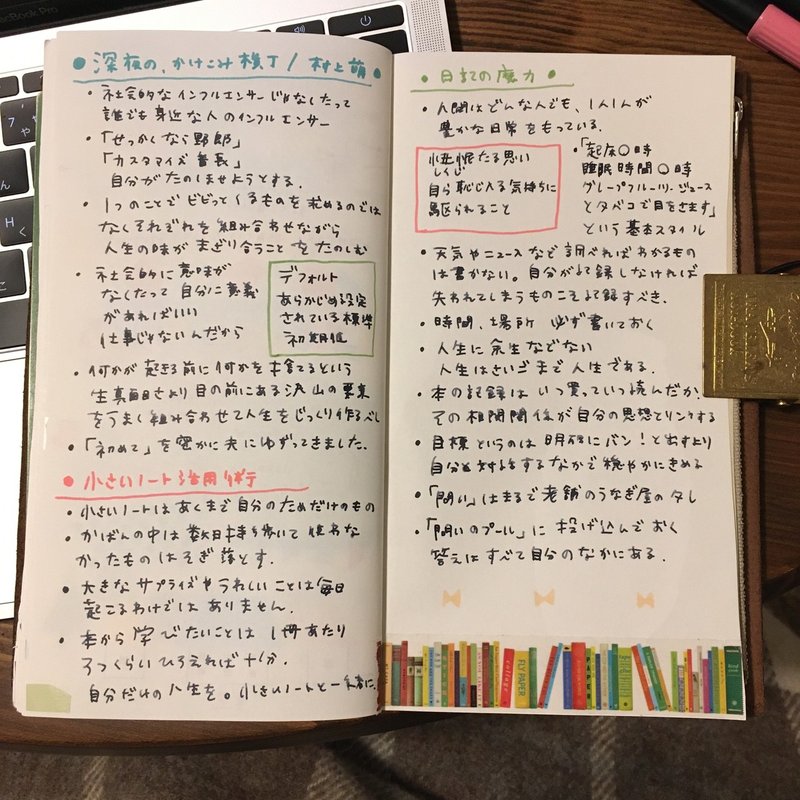 MacBook Pro
深夜の、かけこみ横丁/村上萌
・社会的なインフルエンサーじゃなくたって
誰でも身近な人のインフルエンサー
・「せっかくなら野郎」
「カスタマイズ番長」
自分がたのしませようとする。
・1つのことでビビッとくるものを求めるのでは
なくそれぞれを組み合わせながら
人生の味がまざり合うことをたのしむ
・社会的に意味が
なくたって自分に意義
があればいい
仕事じゃないんだから
デフォルト
あらかじめ設定
されている標準
初期値
・何かが起きる前に何かを捨てるという
生真面目さより目の前にある沢山の要素
をうまく組み合わせて人生をじっくり作るべし
・「初めて」を密かに夫にゆずってきました。
・小さいノート活用術
・小さいノートはあくまで自分のためだけのもの
・かばんの中は数日持ち歩いて使わな
かったものはそぎ落とす。
・大きなサプライズやうれしいことは毎日
起こるわけではありません。
・本から学びたいことは1冊あたり
3つくらいひろえれば十分。
自分だけの人生を。小さいノートと一緒に。
・日記の魔力
・人間はどんな人でも、1人1人が
豊かな日常をもっている。
忸怩たる思い
じくじ
自ら恥じ入る気持ちに
駆られること
・「起床〇時
睡眠時間〇時
グレープフルーツジュース
とタバコで目をさます」
という基本スタイル
・天気やニュースなど調べればわかるもの
は書かない。自分が記録しなければ
失われてしまうものこそ記録すべき。
・時間、場所 必ず書いておく
・人生に余生などない
人生はさいごまで人生である。
・本の記録はいつ買っていつ読んだか、
その相関関係が自分の思想とリンクする
・目標というのは明確にバン!と出すより
自分と対話するなかで穏やかにきめる
・「問い」はまるで老舗のうなぎ屋のタレ
・「問いのプール」に投げ込んでおく
答えはすべて自分のなかにある。
FLY PAPER
college
PAPER